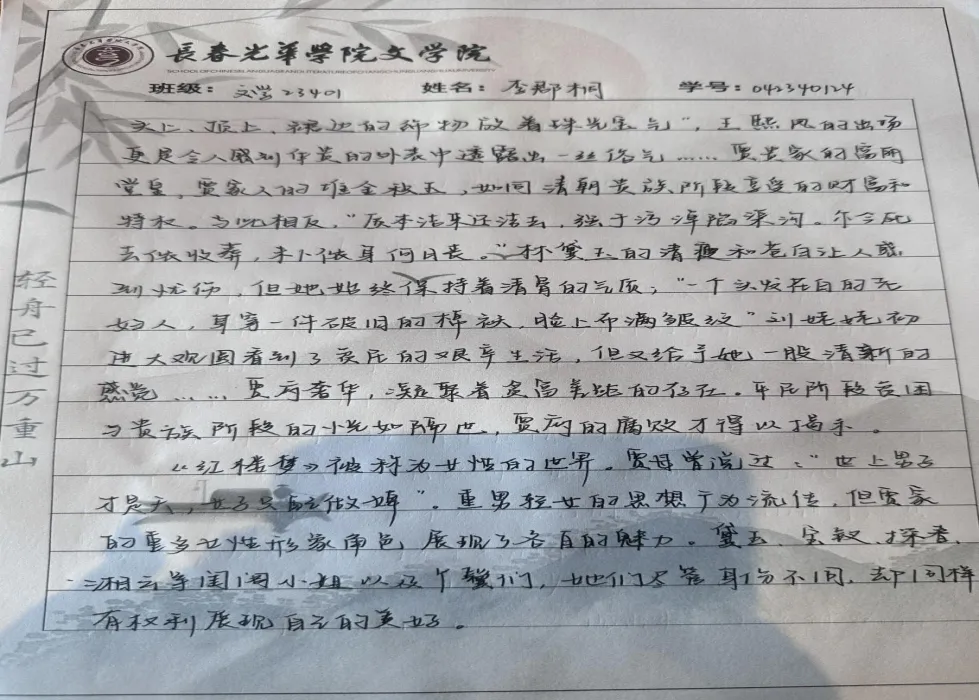 長春光華學院文学院
SCHOOL OF CHINESE LANGUAGE AND LITERATURE OF CHANGCHUN GUANGHUA UNIVERSITY
班級: 文学23401 姓名: 李郡桐 学号: 042340124
头上、顶上、裙边的饰物放着珠光宝气", 王熙凤的出场
更是令人感到华贵的外表中透露出一丝俗气……贾贵家的富丽
堂皇, 贾家人的堆金积玉, 如同清朝贵族阶段享受的财富和
特权。与此相反, "质本洁来还洁去, 强于污淖陷渠沟。尔今死
去侬收葬, 未卜侬身何日丧。"林黛玉的清瘦和苍白让人感
到忧伤, 但她始终保持着清骨的气质; "一个头发花白的老
妇人, 身穿一件破旧的棉袄, 脸上布满皱纹"刘姥姥初
进大观园看到了农民的艰辛生活, 但又给予她一股清新的
感觉……贾府奢华, 凝聚着贫富差距的存在。平民阶段
与贵族阶段的 如隔世, 贾府的腐败才得以揭示。
《红楼梦》被称为女性的世界。贾母曾说过: "世上男子
才是天, 女子只能做婢"。重男轻女的思想广为流传, 但贾家
的重多女性形象角色展现了各自的魅力。黛玉、宝钗、探春、
湘云等闺阁小姐以及丫鬟们, 她们尽管身份不同, 却同样
有权利展现自己的美好。
轻舟已过万重山